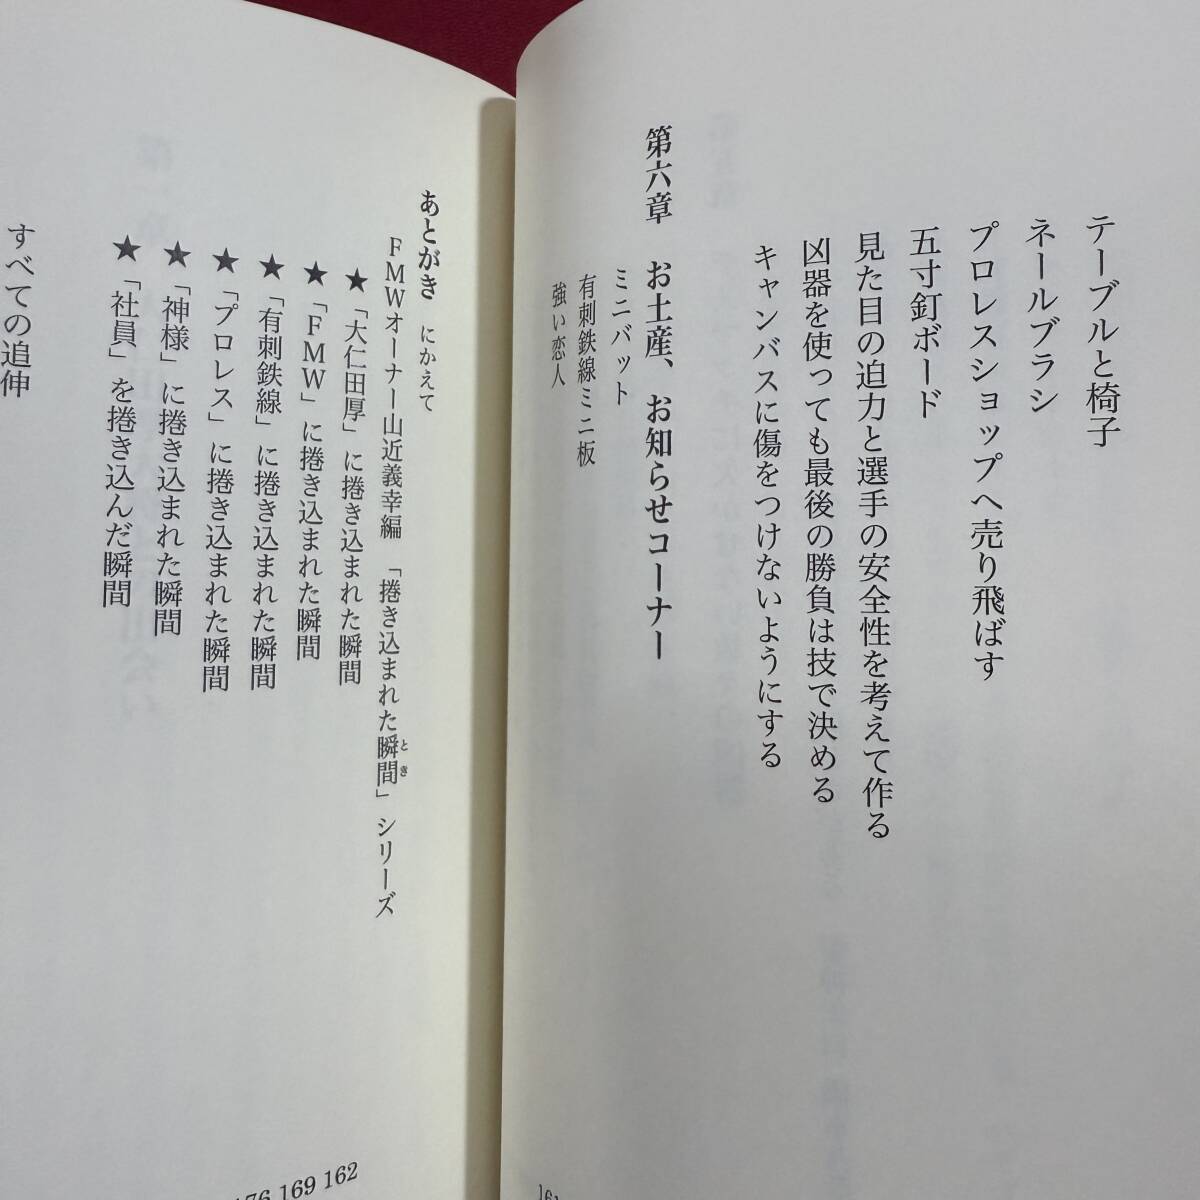 テーブルと椅子
ネールブラシ
プロレスショップへ売り飛ばす
五寸釘ボード
見た目の迫力と選手の安全性を考えて作る
凶器を使っても最後の勝負は技で決める
キャンバスに傷をつけないようにする
第六章　お土産、お知らせコーナー
ミニバット
有刺鉄線ミニ板
強い恋人
あとがき　にかえて
ＦＭＷオーナー山近義幸編　「捲き込まれた瞬間」シリーズ
とき
★「大仁田厚」に捲き込まれた瞬間
★「ＦＭＷ」に捲き込まれた瞬間
★「有刺鉄線」に捲き込まれた瞬間
★「プロレス」に捲き込まれた瞬間
★「神様」に捲き込まれた瞬間
★「社員」を捲き込んだ瞬間
すべての追伸
162
169